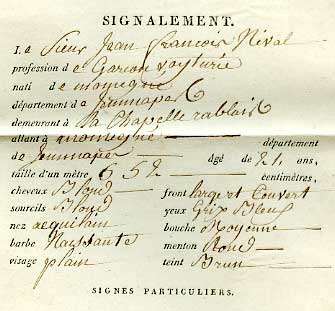 SIGNALEMENT.
Le Sieur Jean francois Nival
profession de Garcon voyturie
nati de momignie
département de Jemmape
demeurant à la Chapelle rablais
allant à momignie département
de Jemmape âgé de 21 ans,
taille d'un mètre 6 52 centimètres,
cheveux Blond front large et Couvert
sourcils Blond yeux Gris Bleus
nez aequilain bouche Moyenne
barbe Naissante menton Rond
visage plain teint Brun
SIGNES PARTICULIERS.